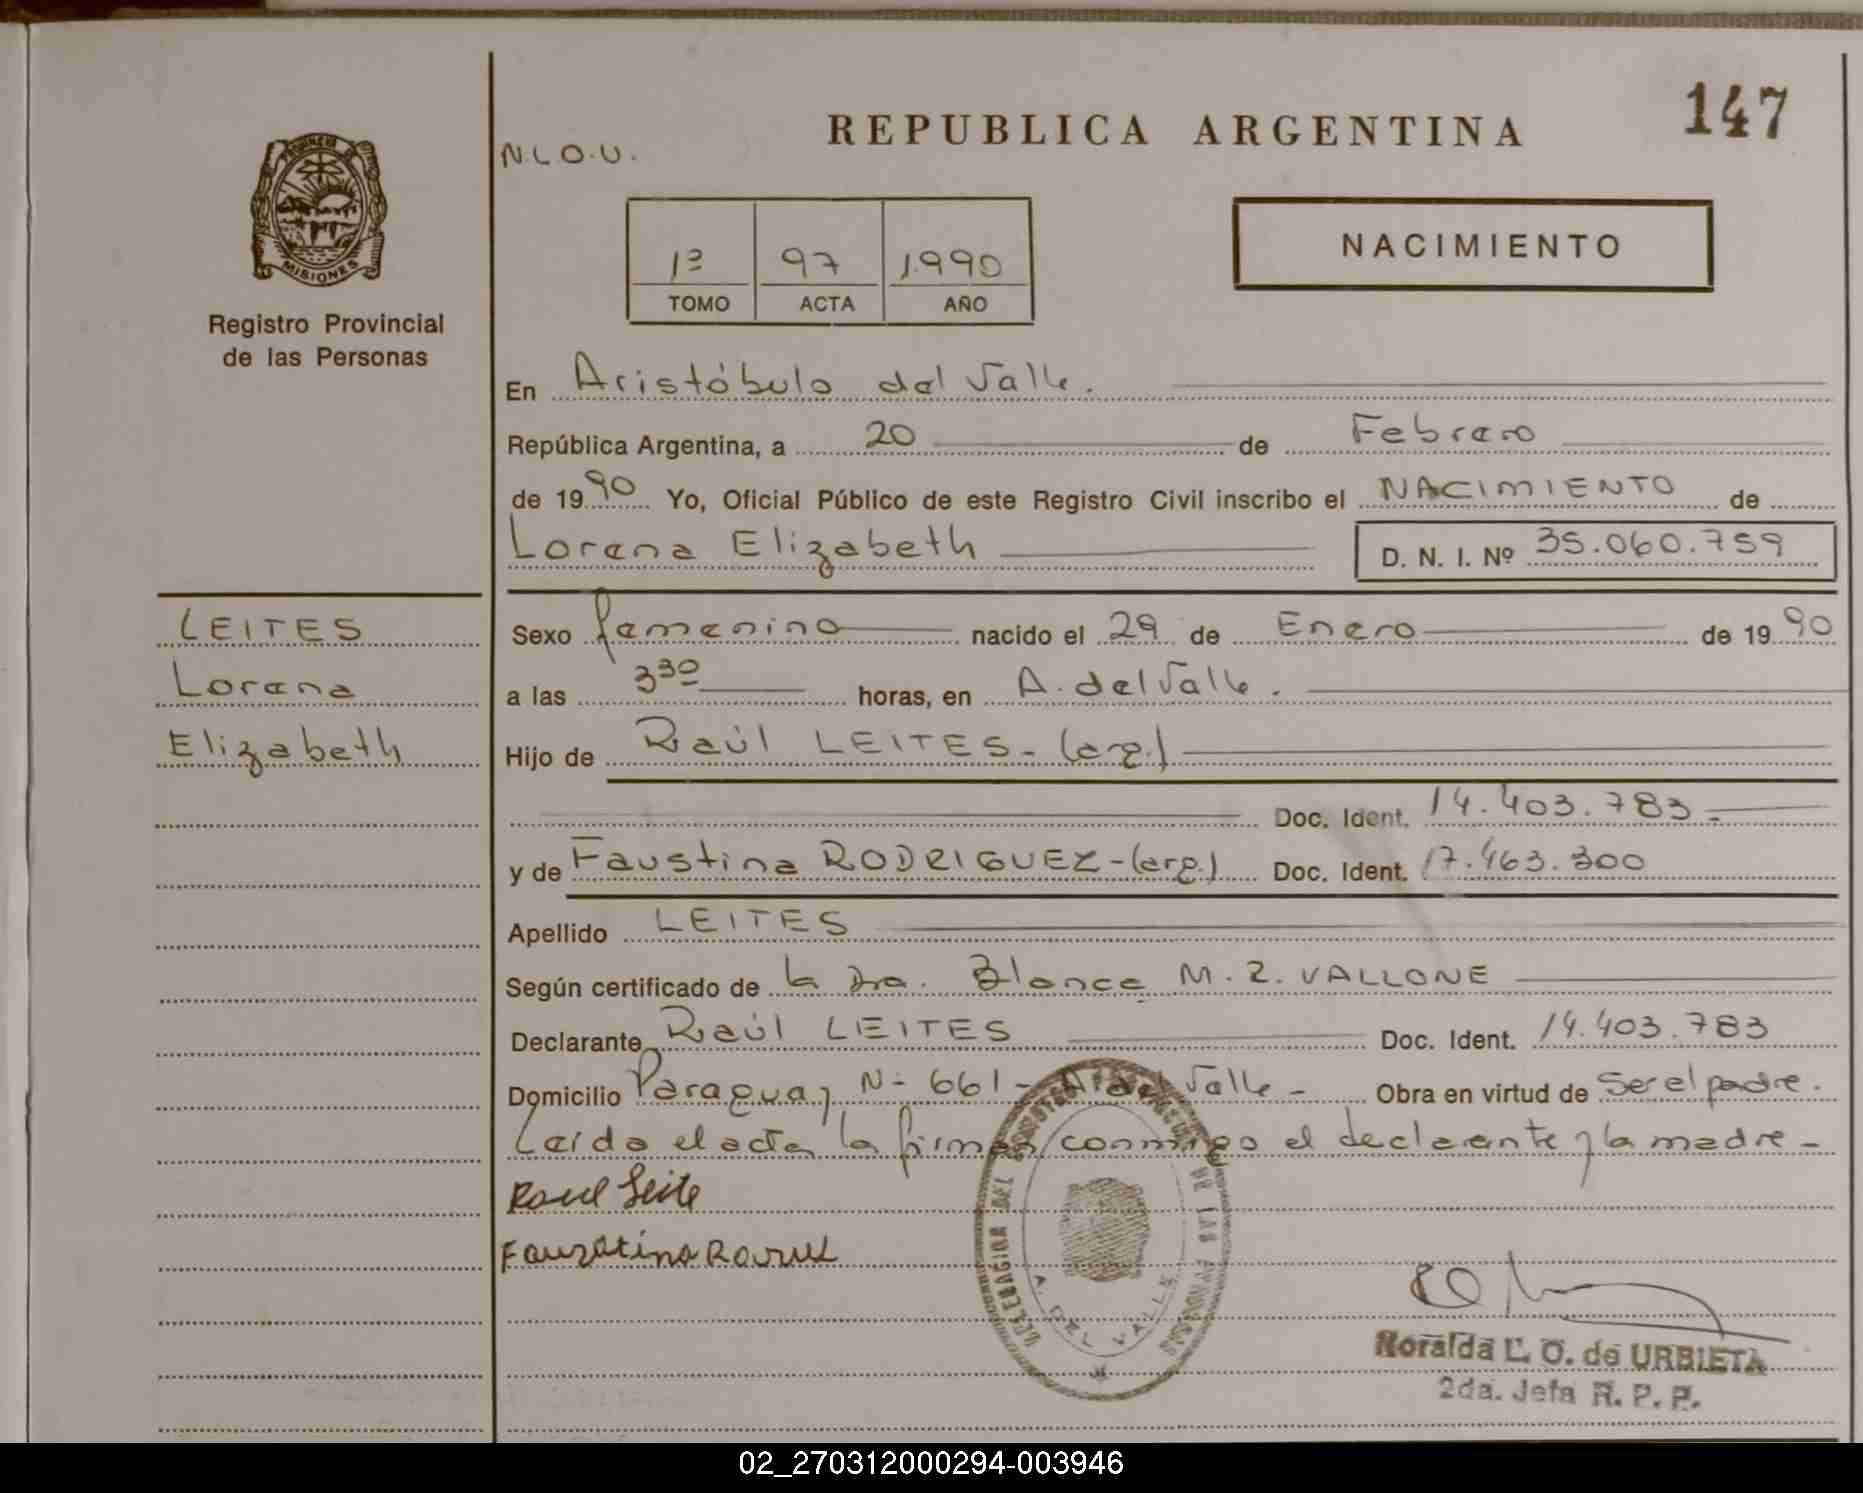 147
REPUBLICA ARGENTINA
N.L.O.U.
PROVINCIA DE
MISIONES
Registro Provincial
de las Personas
1º 97 1.990
TOMO ACTA AÑO
NACIMIENTO
En Aristóbulo del Valle.
República Argentina, a 20 de Febrero
de 1990 Yo, Oficial Público de este Registro Civil inscribo el NACIMIENTO de
Lorena Elizabeth D. N. I. Nº 35.060.759
LEITES
Lorena
Elizabeth
Sexo femenino nacido el 29 de Enero de 1990
a las 3 30 horas, en A. del Valle.
Hijo de Raúl LEITES - (arg.)
Doc. Ident. 14.403.783 -
y de Faustina RODRIGUEZ - (arg.) Doc. Ident. 17.463.300
Apellido LEITES
Según certificado de la Dra. Blanca M. Z. VALLONE
Declarante Raúl LEITES Doc. Ident. 14.403.783
Domicilio Paraguay Nº 661 - A. del Valle - Obra en virtud de Ser el padre.
Leída el acta la firman conmigo el declarante y la madre -
Raul Leite
Fauzatina
DELEGACION DEL REGISTRO DE LAS PERSONAS
A. DEL VALLE
Noralda L. O. de URBIETA
2da. Jefa R. P. P.
02_270312000294-003946